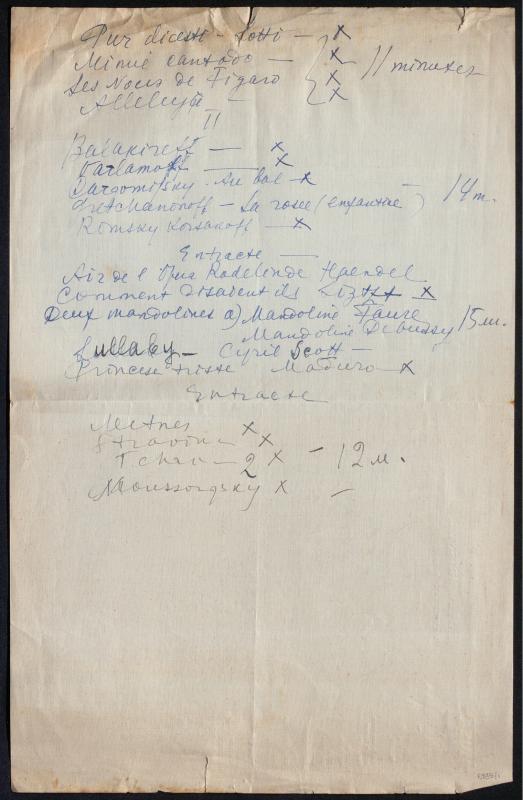 Pur dicesti - Lotti - x
Minué cantado - x
Les Noces de Figaro x 11 minutes
Alleluya - x
II
Balakireff - x
Varlamoff - x
Dargomitsky - Au bal - x
Gretchaninoff - La rosée (enfantine) - 14 m.
Romsky Korsakoff - x
Entracte -
Air de l'Opera Rodelinde Haendel
Comment disaient ils Liszt x
Deux mandolines a) Mandoline Faure
Mandoline Debussy 15 m.
Lullaby - Cyril Scott -
Princese triste Maduro - x
Entracte
Metner x
Stravin - x
Tchai - 2 x - 12 m.
Moussorgsky x -